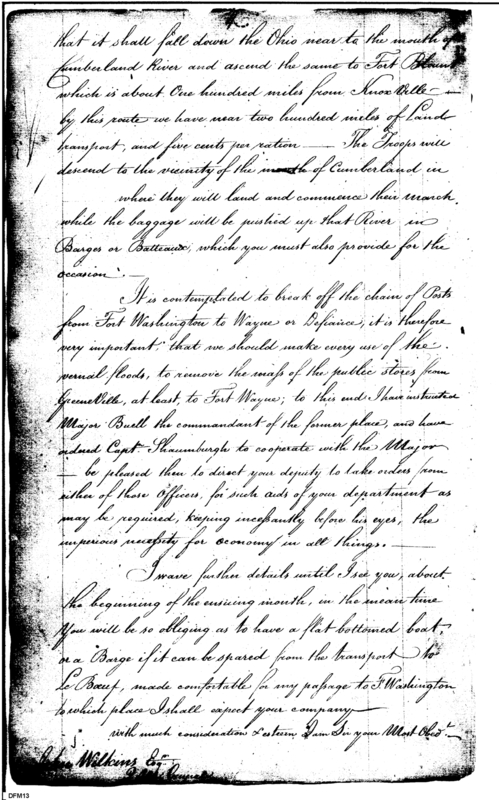 that it shall fall down the Ohio near to the mouth of
Cumberland River and ascend the same to Fort Blount
which is about One hundred miles from Knoxville —
by this route we have near two hundred miles of Land
transport, and five cents per ration — The Troops will
descend to the vicinity of the mouth of Cumberland in
where they will land and commence their march,
while the baggage will be pushed up that River in
Barges or Batteaux, which you must also provide for the
occasion. —
It is contemplated to break off the chain of Posts
from Fort Washington to Wayne or Defiance, it is therefore
very important that we should make every use of the
vernal floods, to remove the mass of the public stores from
GreeneVille, at least, to Fort Wayne; to this end I have instructed
Major Buell the commandant of the former place, and have
ordered Capt. Shaumburgh to cooperate with the Major
— be pleased then to direct your deputy to take orders from
either of those Officers, for such aids of your department as
may be required, keeping incessantly before his eyes, the
imperious necessity for economy in all things. —
I wave further details until I see you, about
the beginning of the ensuing month, in the mean time
You will be so obliging as to have a flat bottomed boat,
or a Barge if it can be spared from the transport to
Le Bœuf, made comfortable for my passage to F. Washington
to which place I shall expect your company —
with much consideration & esteem I am Sir your Most Obedt
Wilkins Esqr
DFM13